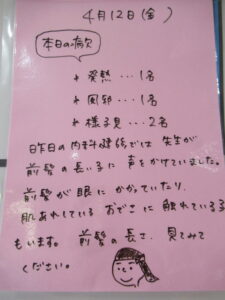 4月12日(金)
本日の病欠
* 発熱・・・1名
* 風邪・・・1名
* 様子見・・・2名
昨日の内科健診では 先生が
前髪の長い子に 声をかけていました。
前髪が眼に かかっていたり、
肌あれしている おでこに 触れている子
もいます。 前髪の長さ、見てみて
ください。